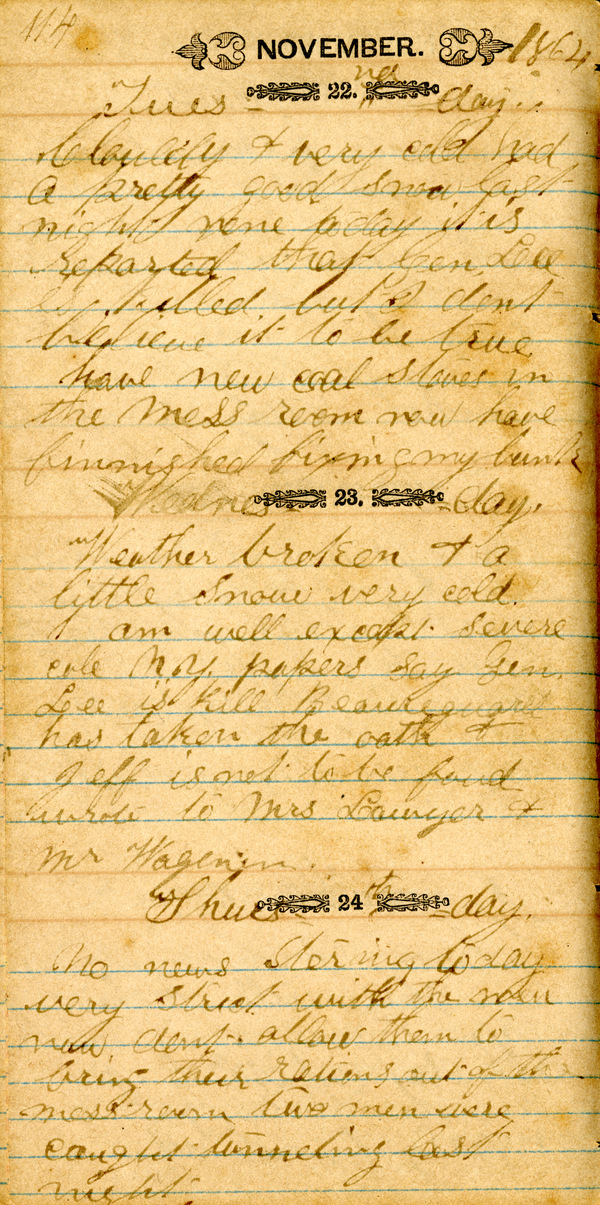 114
NOVEMBER. 1864
Tues- 22.nd -day.
Cloudy & very cold had
a pretty good snow last
night none today it is
reported that Gen Lee
is killed but I dont
believe it to be true
have new coal stoves in
the mess room now have
finnished fixing my bunk
Wednes- 23. -day.
Weather broken & a
little snow very cold.
I am well except severe
cole N.Y. papers say Gen.
Lee is kill Beaureguard
has taken the oath &
Jeff is not to be foud
wrote to Mrs Lawyer &
Mr
Thurs- 24th -day.
No news stering today
very strict with the men
now dont allow them to
bring their rations out of the
mess room two men were
caught tunneling last
night.